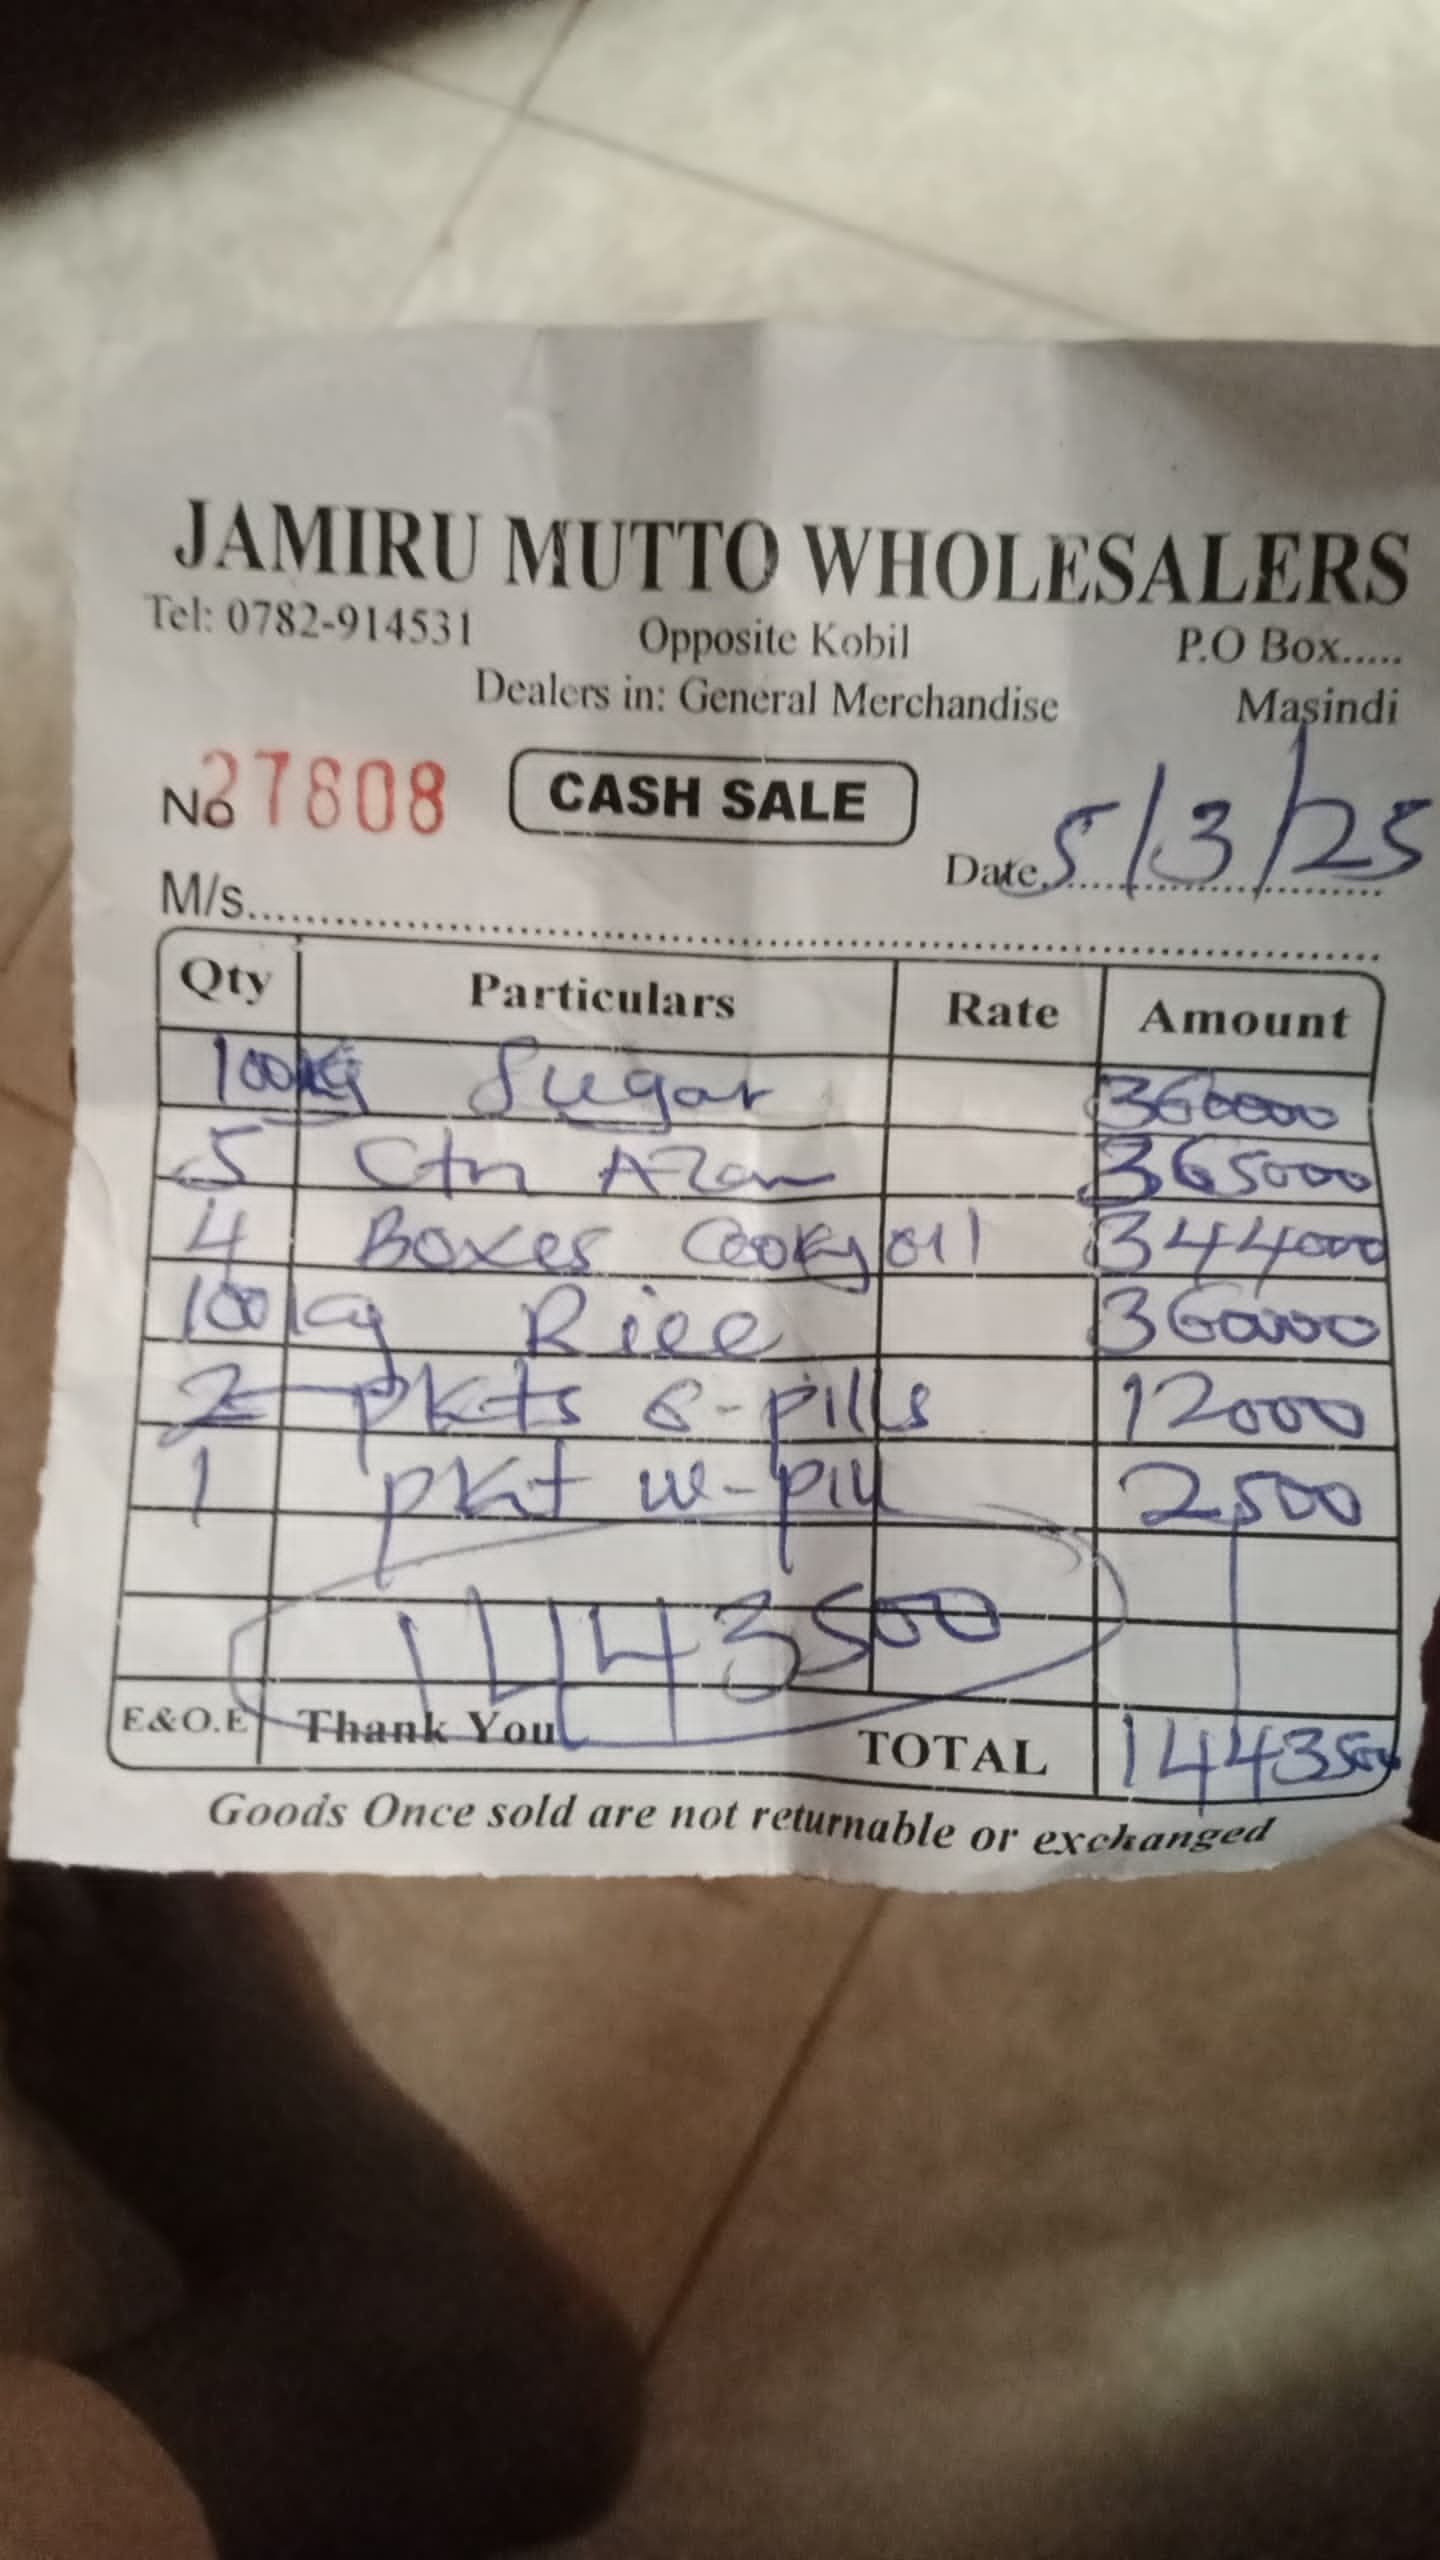 JAMIRU MUTTO WHOLESALERS
Tel: 0782-914531 Opposite Kobil P.O Box.....
Dealers in: General Merchandise Masindi
No 27808 CASH SALE
Date 5/3/25
M/s
Qty Particulars Rate Amount
100kg Sugar 360000
5 Ctn Azam 365000
4 Boxes Cookg oil 344000
100kg Rice 360000
2 pkts B-pills 12000
1 pkt w-pill 2500
1443500
E&O.E Thank You TOTAL 1443500
Goods Once sold are not returnable or exchanged